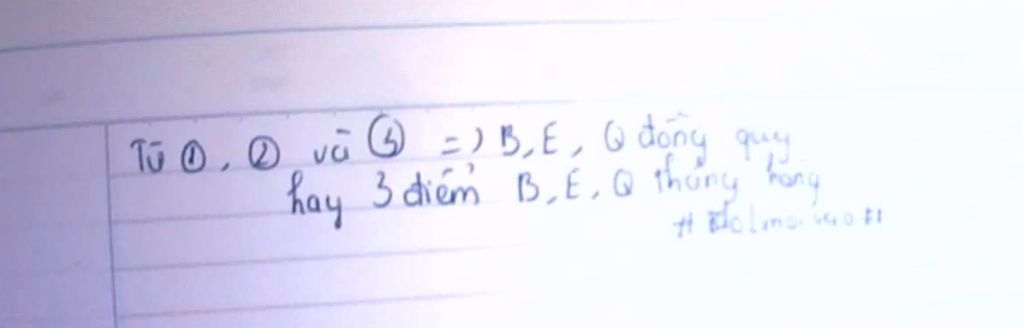 Từ ①, ② và ③ => B, E, Q đồng quy
hay 3 điểm B, E, Q thẳng hàng